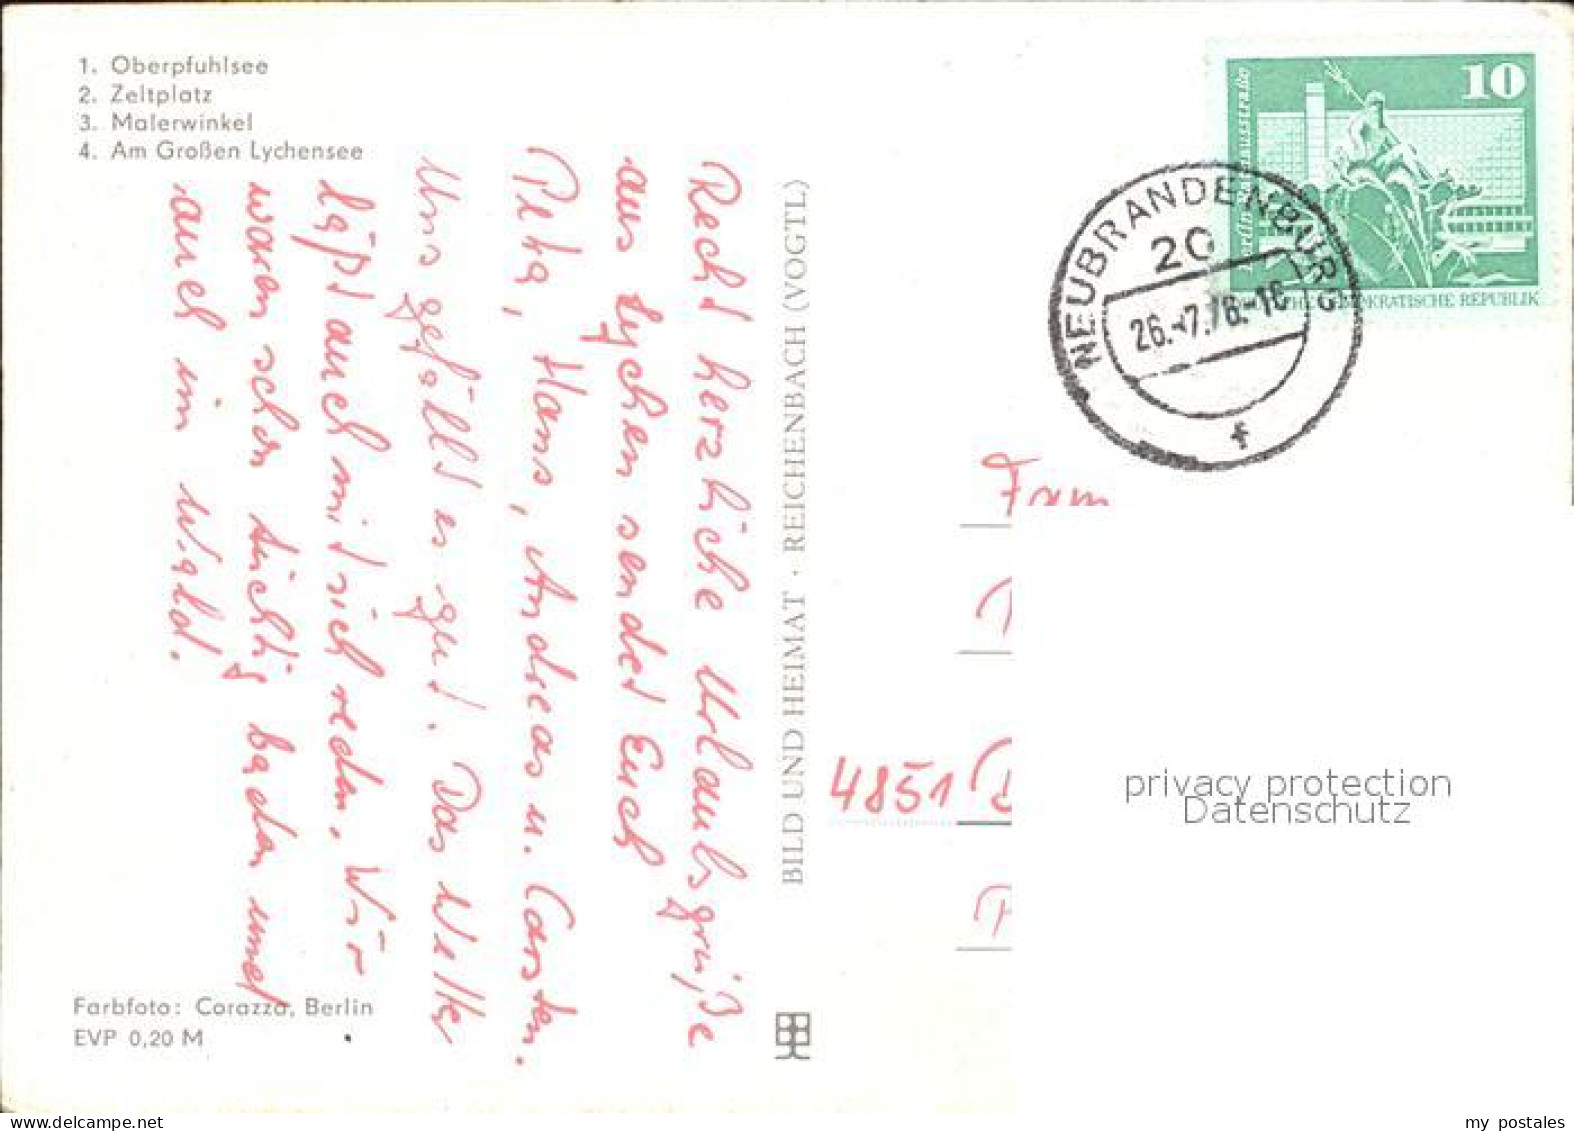 1. Oberpfuhlsee
2. Zeltplatz
3. Malerwinkel
4. Am Großen Lychensee
Recht herzliche Urlaubsgrüße
aus Lychen sendet Euch
Petra, Hans, Andreas u. Carsten.
Uns gefällt es gut. Das Wetter
läßt auch mit sich reden. Wir
waren schon tüchtig baden und
auch im Wald.
Farbfoto: Corazza, Berlin
EVP 0,20 M
BILD UND HEIMAT · REICHENBACH (VOGTL)
10
DEMOKRATISCHE REPUBLIK
NEUBRANDENBURG
20
26.-7.76.-16
f
Fam
4851
privacy protection
Datenschutz
my postales